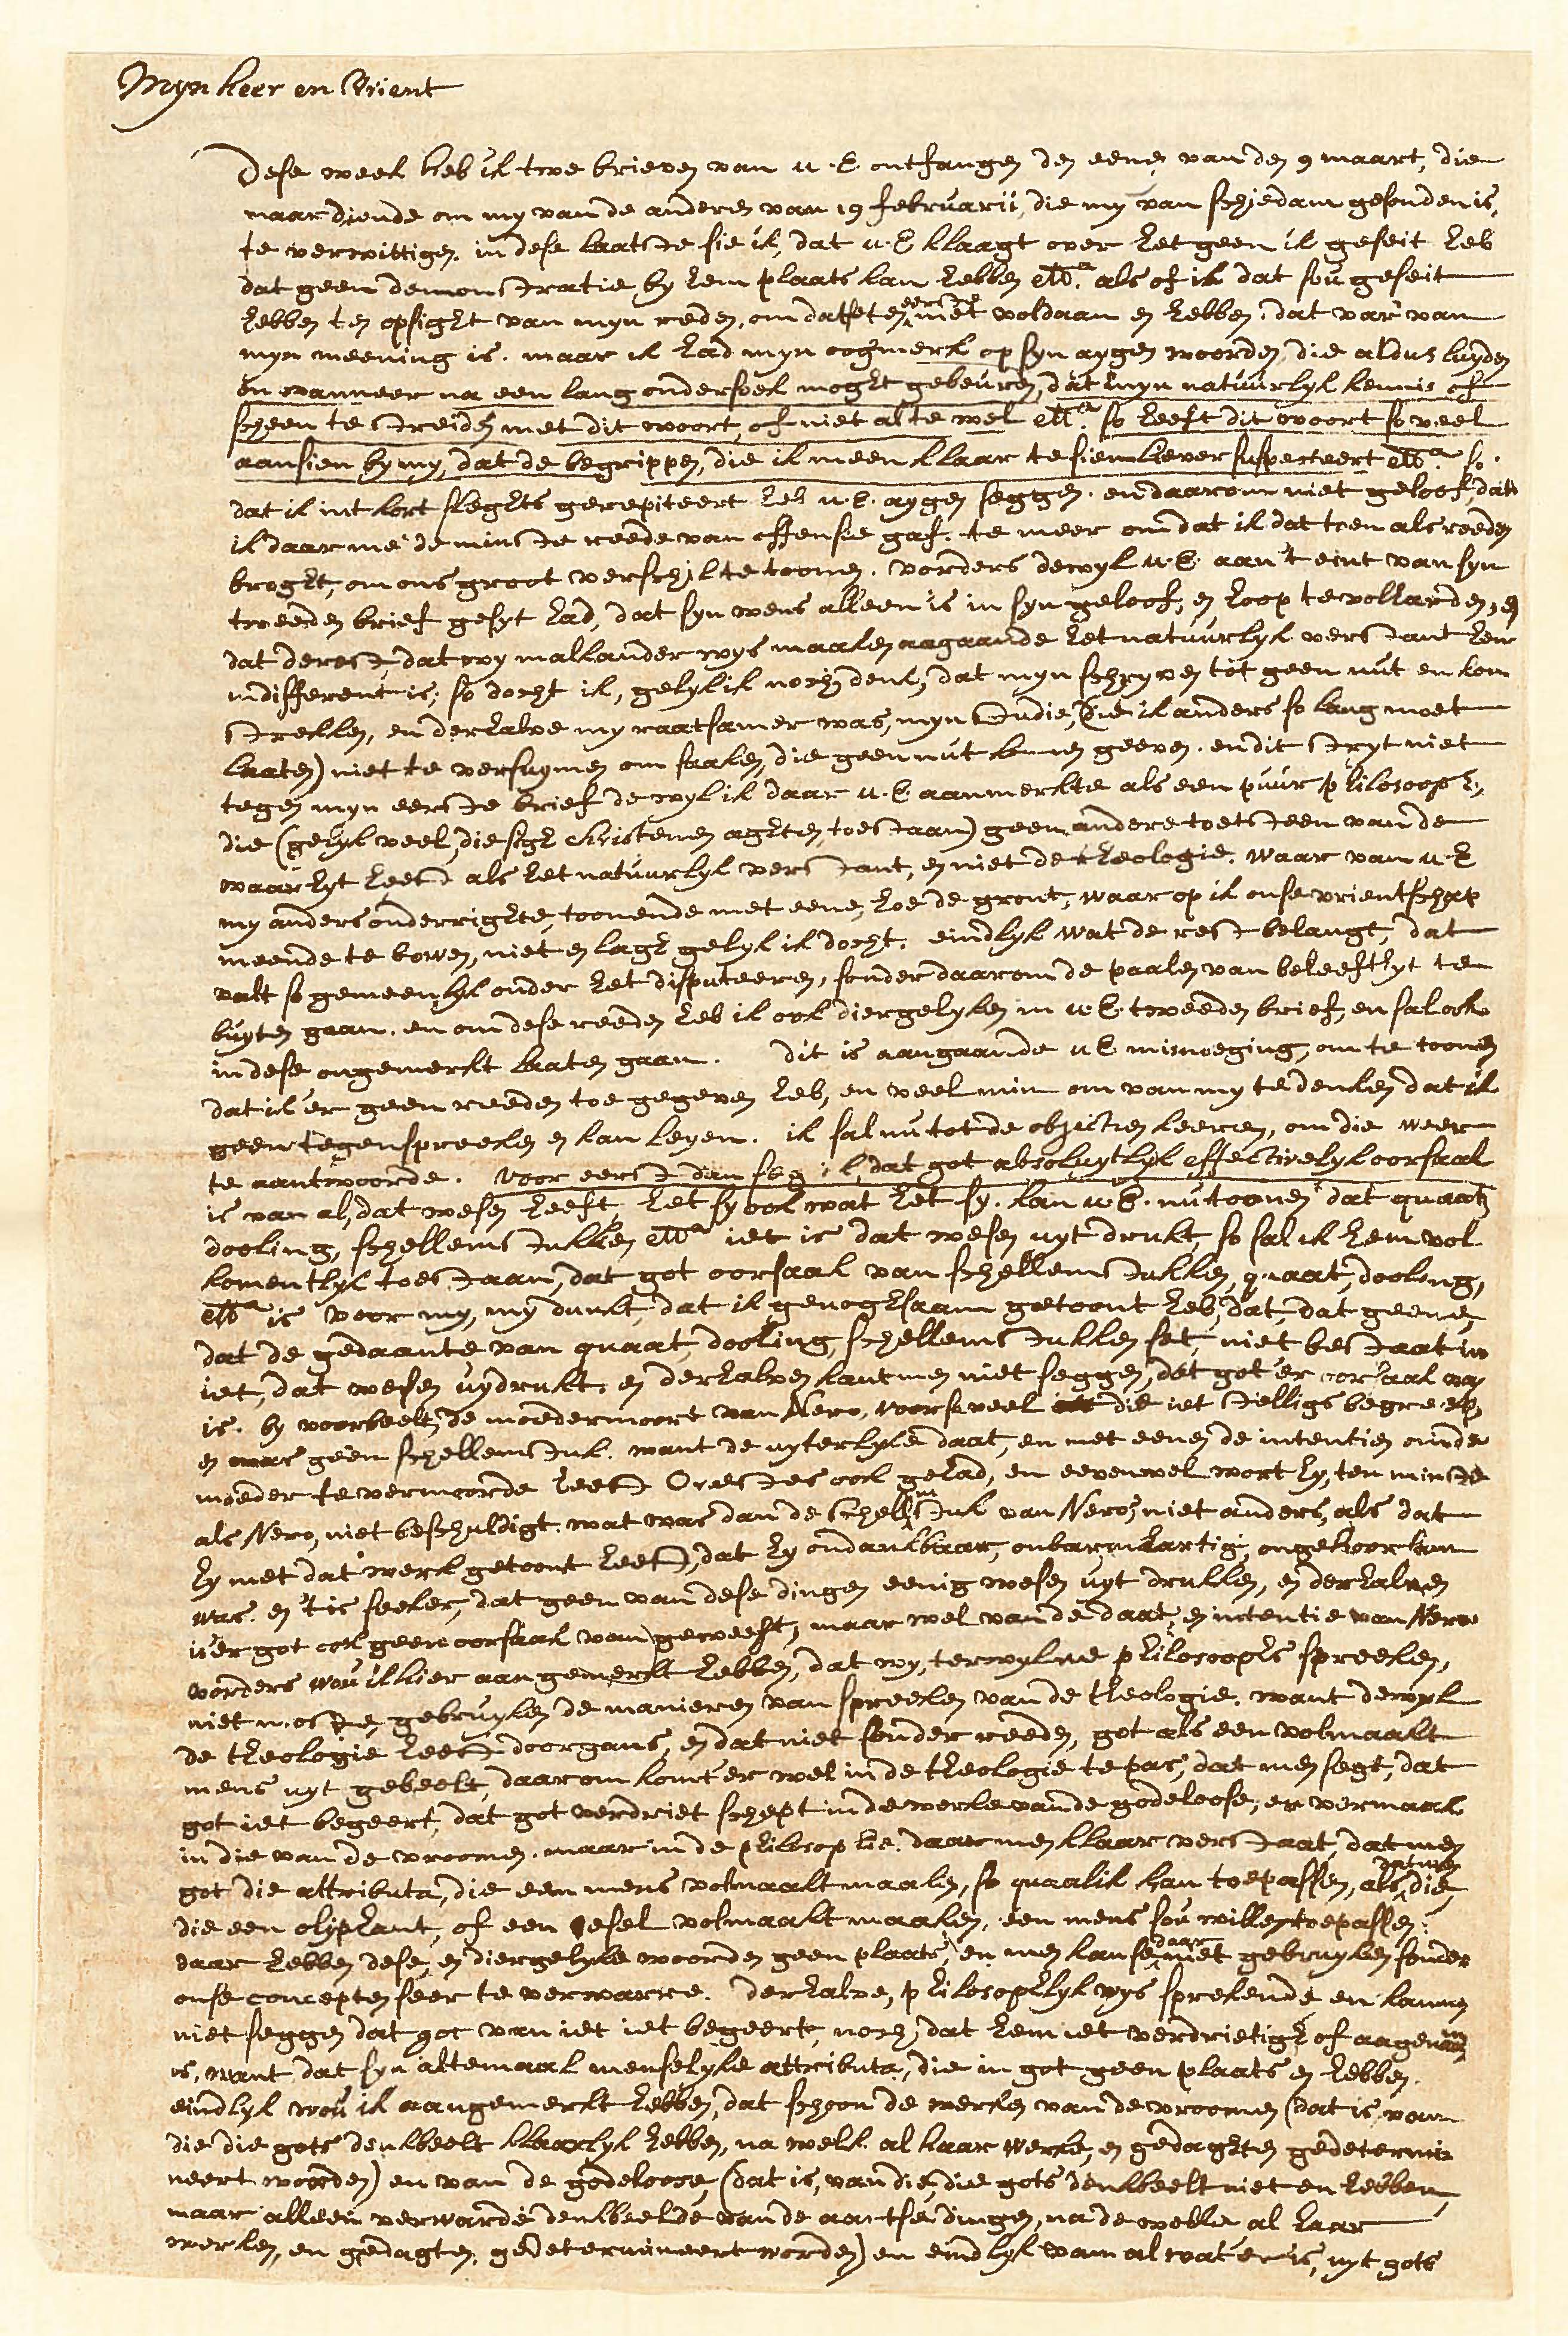 Mijn heer en Vrient
Dese week heb ik twe brieven van u.E. ontfangen den eenen van den 9 maart, die
maar diende om my van de anderen van 19 februarii, die my van schiedam gesonden is,
te verwittigen. in dese laatste sie ik, dat u.E klaagt over het geen ik geseit heb
dat geen demonstratie by hem plaats kan hebben etc.a als of ik dat sou geseit
hebben ten opsight van myn reden, om dat se ten eersten niet voldaan en hebben, dat var van
myn meening is. maar ik had myn oogmerk op syn aygen woorden, die aldus luyden
en wanneer na een lang ondersoek moght gebeuren, dat myn natuurlyk kennis of
scheen te streiden met dit woort, of niet al te wel etc.a so heeft dit woort so veel
aansien by my, dat de begrippen, die ik meen klaar te sien liever suspecteert etc.a so.
dat ik int kort sleghts gerepiteert heb u.E. aygen seggen. en daarom niet geloof, dat
ik daar me de minste reede van offensie gaf. te meer om dat ik dat toen als reeden
broght, om ons groot verschil te toonen. vorders dewyl u.E. aan 't eint van syn
tweeden brief gesyt had, dat syn wens alleen is in syn geloof, en hoop te volharden, en
dat de rest, dat wy malkander wys maaken aagaande het natuurlyk verstant hem
indifferent is; so docht ik, gelyk ik noch denk, dat myn schryven tot geen nut en kon
strekken, en derhalve my raatsamer was, myn studie, (die ik anders so lang moet
laaten) niet te versuymen om saaken, die geen nut konnen geeven. en dit stryt niet
tegen myn eerste brief dewyl ik daar u.E aanmerkte als een puur philosooph,
die (gelyk veel, die sigh christenen aghten, toestaan) geen andere toetsteen van de
waarhyt heest als het natuurlyk verstant, en niet de theologie. waar van u.E
my anders onderrighte, toonende met eene, hoe de gront, waar op ik onse vrientschap
meende te bowen, niet en lagh gelyk ik docht. eindlyk wat de rest belangt, dat
valt so gemeenlyk onder het disputeeren, sonder daarom de paalen van beleefthyt te
buyten gaan. en om dese reeden heb ik ook diergelyken in u.E. tweeden brief, en sal ook
in dese ongemerkt laaten gaan. dit is aangaande u E misnoeging, om te toonen
dat ik er geen reeden toe gegeven heb, en veel min om van my te denken dat ik
geen tegenspreeken en kan leyen. ik sal nu tot de objectien keeren, om die weer
te aantwoorde. Voor eerst dan seg ik, dat got absoluytlyk effectivelyk oorsaak
is van al, dat wesen heeft, het sy ook wat het sy. kan u.E. nu toonen dat quaat,
dooling, schellemstukken etc.a iet is dat wesen uyt drukt, so sal ik hem vol
komentlyk toestaan, dat got oorsaak van schellemstukken, quaat, dooling,
etc.a is voor my, my dunkt, dat ik genoghsaam getoont heb, dat, dat geene,
dat de gedaante van quaat, dooling, schellemstukken set, niet bestaat in
iet, dat wesen uydrukt. en derhalven kant men niet seggen, dat got er oorsaak van
is. by voorbeelt, de moedermoort van Nero, voor so veel die iet stelligs begreep,
en was geen schellemstuk. want de uyterlyke daat, en met eenen de intentien om de
moeder te vermoorde heest Orestes ook gehad, en eevenwel wort hy, ten minste
als Nero, niet beschuldigt. wat was dan de schellemstuk van Nero? niet anders, als dat
hy met dat werk getoont heest, dat hy ondankbaar, onbarmhartig, ongehoorsam
was. en 't is seeker, dat geen van dese dingen eenig wesen uyt drukken, en derhalven
is er got ook geen oorsaak van geweest, maar wel van de daat, en intentie van Nero
vorders wou ik hier aangemerkt hebben, dat wy, terwyl we philosoophs spreeken,
niet mosten gebruyken de manieren van spreeken van de theologie. want dewyl
de theologie heest doorgans, en dat niet sonder reeden, got als een volmaakt
mens uyt gebeelt, daarom komt er wel in de theologie te pas, dat men segt, dat
got iet begeert, dat got verdriet schept in de werke van de godeloose, en vermaak
in die van de vroomen. maar in de philosophie. daar men klaar verstaat, dat men
got die attributa, die een mens volmaakt maaken, so qualik kan toepassen, als dat men die
die een olyphant, of een esel volmaakt maaken, een mens sou willen toepassen:
daar hebben dese, en diergelyke woorden geen plaats, en men kan se daar niet gebruyken sonder
onse concepten seer te verwarre. derhalve, philosophlyk wys sprekende en kannen
niet seggen dat got van iet iet begeert, noch, dat hem iet verdrietigh of aagenam
is, want dat syn altemaal menselyke attributa, die in got geen plaats en hebben.
eindlyk wou ik aangemerkt hebben, dat schoon de werken van de vroomen (dat is, van
die die gots denkbeelt klaarlyk hebben, na welk al haar werke, en gedaghten gedetermi
neert worden) en van de godeloose, (dat is, van die, die gots denkbeelt niet en hebben,
maar alleen verwarde denkbeelde van de aartse dingen, na de welke al haar
werken, en gedagten, gedetermineert worden) en eindlyk van al wat er is, uyt gots